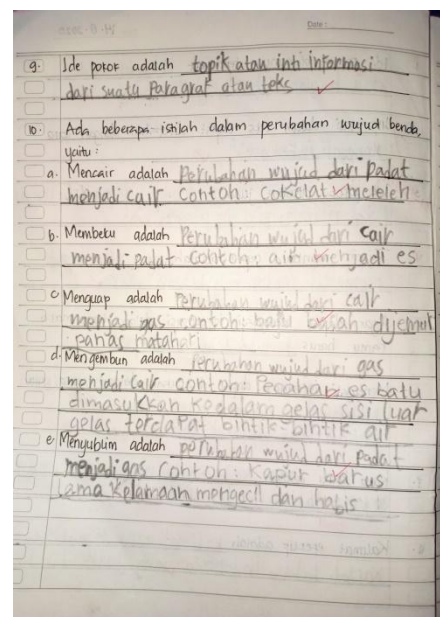 Date :
9. Ide pokok adalah topik atau inti informasi
dari suatu Paragraf atau teks
10. Ada beberapa istilah dalam perubahan wujud benda,
yaitu :
a. Mencair adalah Perubahan wujud dari Padat
menjadi cair contoh : cokelat meleleh
b. Membeku adalah Perubahan wujud dari cair
menjadi padat contoh : air menjadi es
c Menguap adalah Perubahan wujud dari cair
menjadi gas contoh : baju basah dijemur
panas matahari
d. Mengembun adalah Perubahan wujud dari gas
menjadi cair contoh : Pecahan es batu
dimasukkan kedalam gelas sisi luar
gelas terdapat bintik-bintik air
e. Menyublim adalah perubahan wujud dari Padat
menjadi gas contoh : kapur barus
lama kelamaan mengecil dan habis